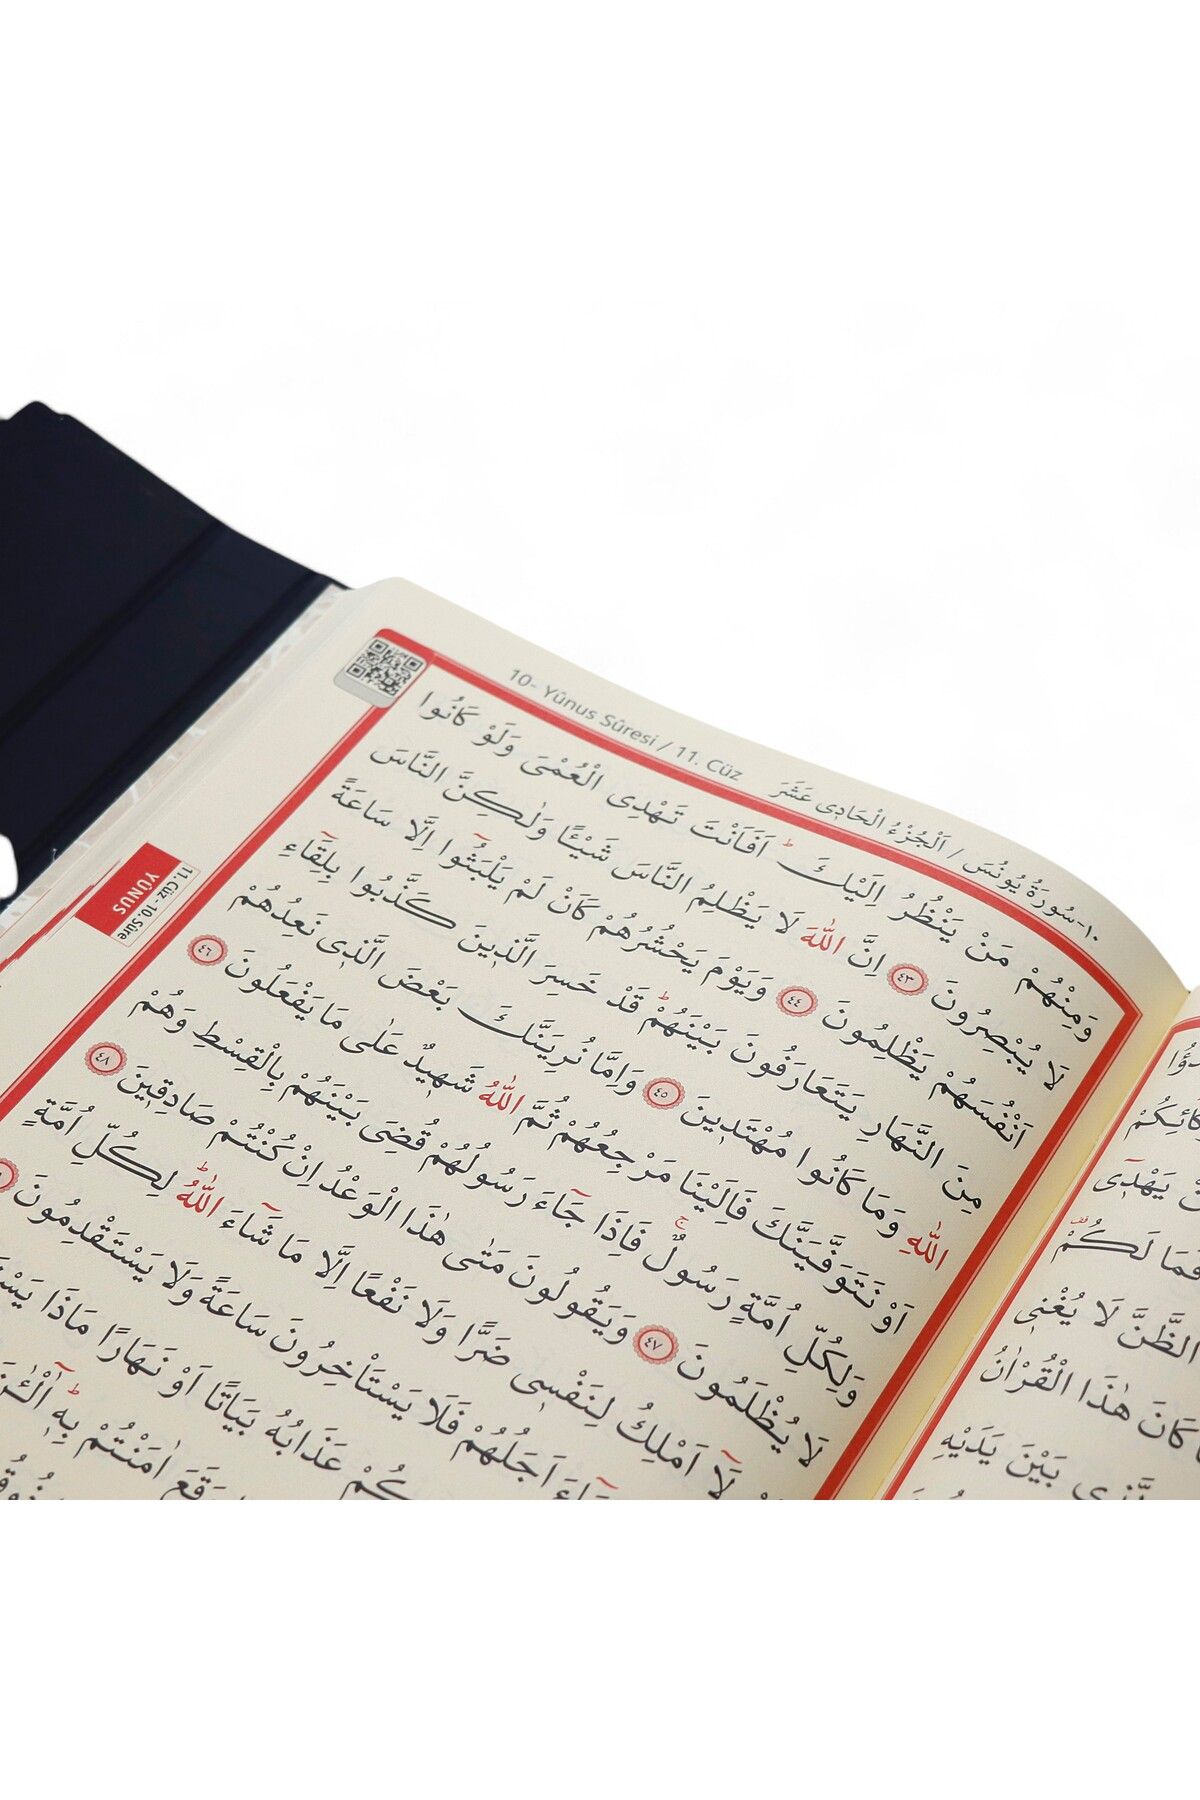 10- Yûnus Sûresi / 11. Cüz
١٠-سُورَةُ يُونُسَ / اَلْجُزْءُ الْحَادِي عَشَرَ
وَمِنْهُمْ مَنْ يَنْظُرُ اِلَيْكَۜ اَفَاَنْتَ تَهْدِي الْعُمْيَ وَلَوْ كَانُوا
لَا يُبْصِرُونَ ﴿٤٣﴾ اِنَّ اللّٰهَ لَا يَظْلِمُ النَّاسَ شَيْـًٔا وَلٰكِنَّ النَّاسَ
اَنْفُسَهُمْ يَظْلِمُونَ ﴿٤٤﴾ وَيَوْمَ يَحْشُرُهُمْ كَاَنْ لَمْ يَلْبَثُٓوا اِلَّا سَاعَةً
مِنَ النَّهَارِ يَتَعَارَفُونَ بَيْنَهُمْۜ قَدْ خَسِرَ الَّذِينَ كَذَّبُوا بِلِقَٓاءِ
اللّٰهِ وَمَا كَانُوا مُهْتَدِينَ ﴿٤٥﴾ وَاِمَّا نُرِيَنَّكَ بَعْضَ الَّذِي نَعِدُهُمْ
اَوْ نَتَوَفَّيَنَّكَ فَاِلَيْنَا مَرْجِعُهُمْ ثُمَّ اللّٰهُ شَهِيدٌ عَلٰى مَا يَفْعَلُونَ ﴿٤٦﴾
وَلِكُلِّ اُمَّةٍ رَسُولٌۚ فَاِذَا جَٓاءَ رَسُولُهُمْ قُضِيَ بَيْنَهُمْ بِالْقِسْطِ وَهُمْ
لَا يُظْلَمُونَ ﴿٤٧﴾ وَيَقُولُونَ مَتٰى هٰذَا الْوَعْدُ اِنْ كُنْتُمْ صَادِقِينَ ﴿٤٨﴾
لَٓا اَمْلِكُ لِنَفْسِي ضَرًّا وَلَا نَفْعًا اِلَّا مَا شَٓاءَ اللّٰهُۜ لِكُلِّ اُمَّةٍ
اَجَلُهُمْ فَلَا يَسْتَأْخِرُونَ سَاعَةً وَلَا يَسْتَقْدِمُونَ
عَذَابُهُ بَيَاتًا اَوْ نَهَارًا مَاذَا
وَقَعَ اٰمَنْتُمْ بِهِۜ
11. Cüz-10. Sûre
YÛNUS
يَهْدِٓي
فَمَا لَكُمْ
الظَّنَّ لَا يُغْنِي
كَانَ هٰذَا الْقُرْاٰنُ
بَيْنَ يَدَيْهِ